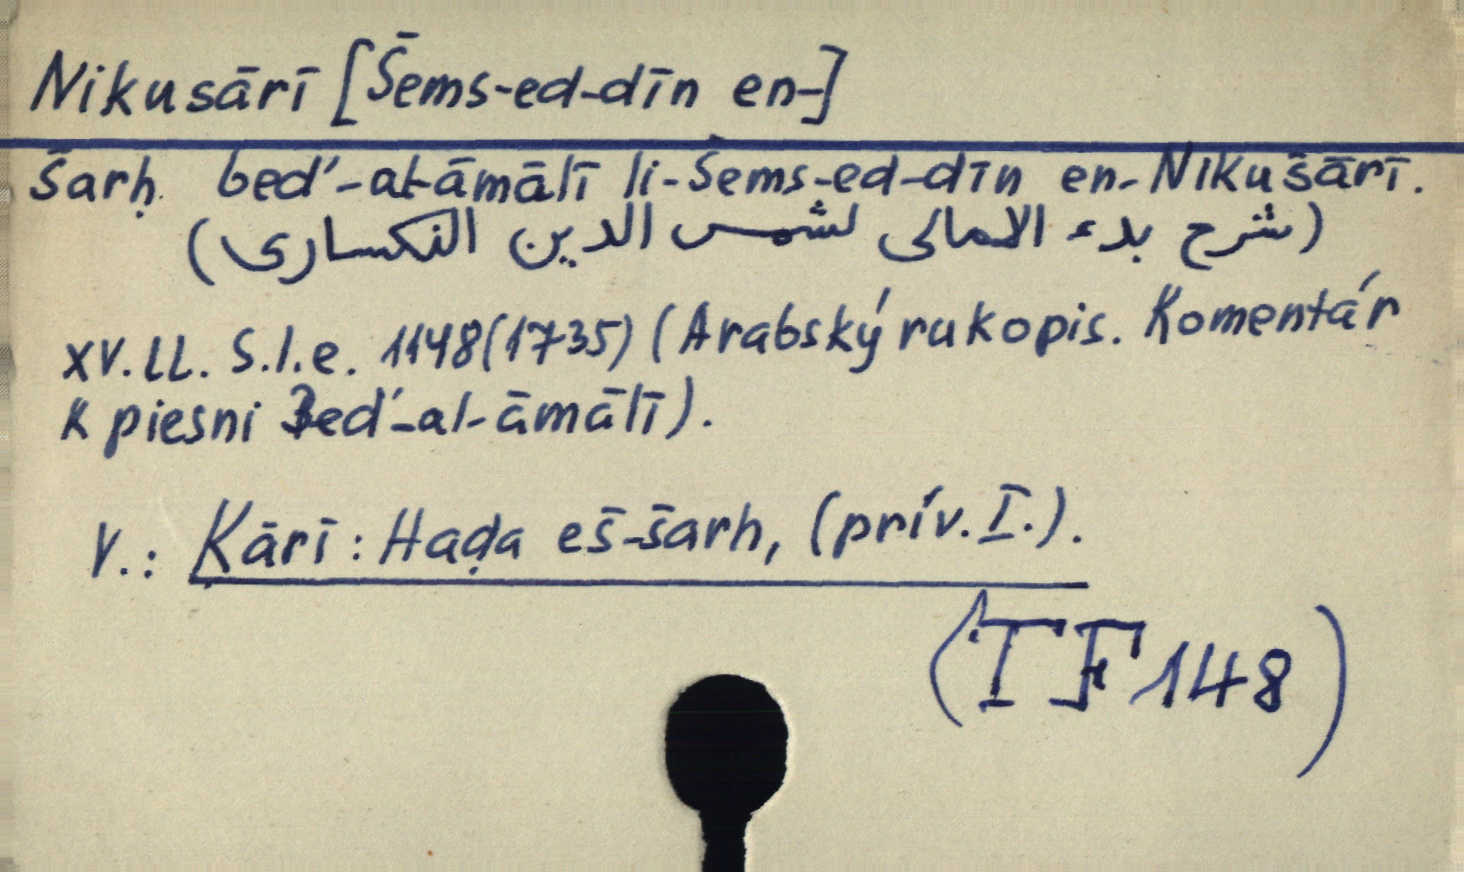 Nikusārī [S̄ems-ed-dīn en-]
S̄arḥ bed'-al-āmālī li-S̄ems-ed-dīn en-Nikus̄ārī.
(شرح بدء الامالى لشمس الدين النكسارى)
XV.LL. S.l.e. 1148(1735) (Arabský rukopis. Komentár
k piesni Bed'-al-āmālī).
V.: Ḳārī: Haḍa es̄-s̄arh, (prív. I.).
(TF 148)